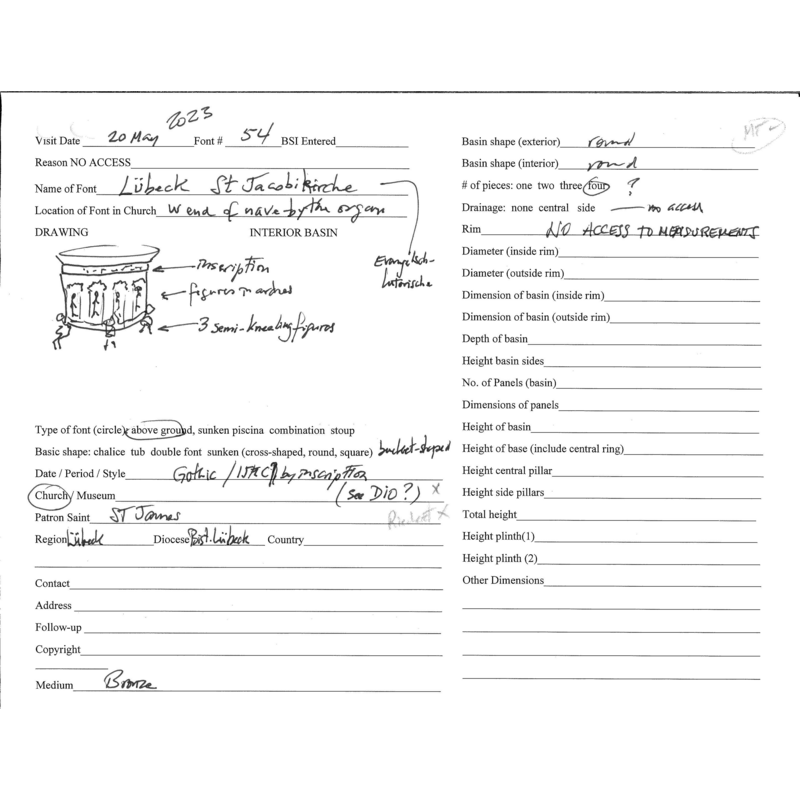 2023
Visit Date 20 May Font # 54 BSI Entered
Reason NO ACCESS
Name of Font Lübeck St Jacobikirche
Evangelisch-
Luterische
Location of Font in Church W end of nave by the organ
DRAWING INTERIOR BASIN
inscription
figures in arches
3 semi-kneeling figures
Type of font (circle) above ground, sunken piscina combination stoup
Basic shape: chalice tub double font sunken (cross-shaped, round, square) bucket-shaped
Date / Period / Style Gothic / 15thC by inscription
Church / Museum (see DIO?) X
Patron Saint ST James
Region Lübeck Diocese Bist. Lübeck Country
Contact
Address
Follow-up
Copyright
Medium Bronze
MF ✓
Basin shape (exterior) round
Basin shape (interior) round
# of pieces: one two three four ?
Drainage: none central side no access
Rim NO ACCESS TO MEASUREMENTS
Diameter (inside rim)
Diameter (outside rim)
Dimension of basin (inside rim)
Dimension of basin (outside rim)
Depth of basin
Height basin sides
No. of Panels (basin)
Dimensions of panels
Height of basin
Height of base (include central ring)
Height central pillar
Height side pillars
Total height
Height plinth(1)
Height plinth (2)
Other Dimensions